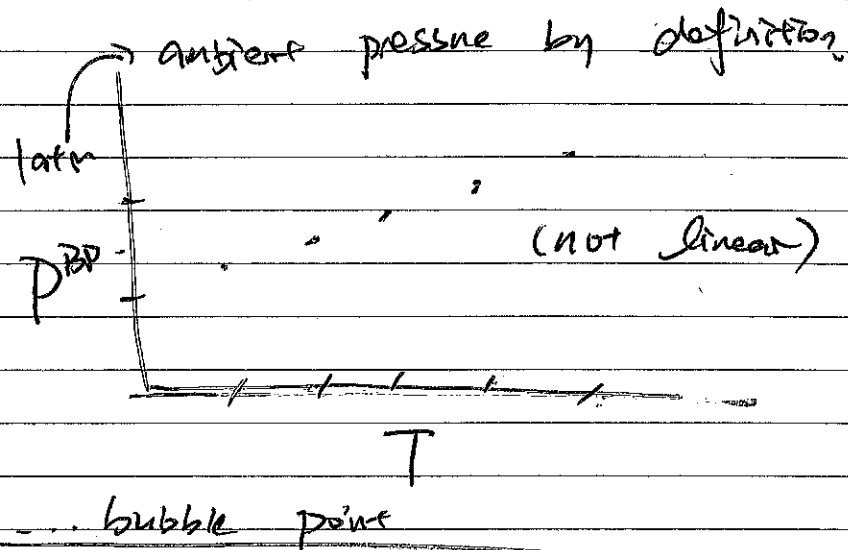 ambient pressure by definition
1atm
P^BP
(not linear)
T
... bubble point